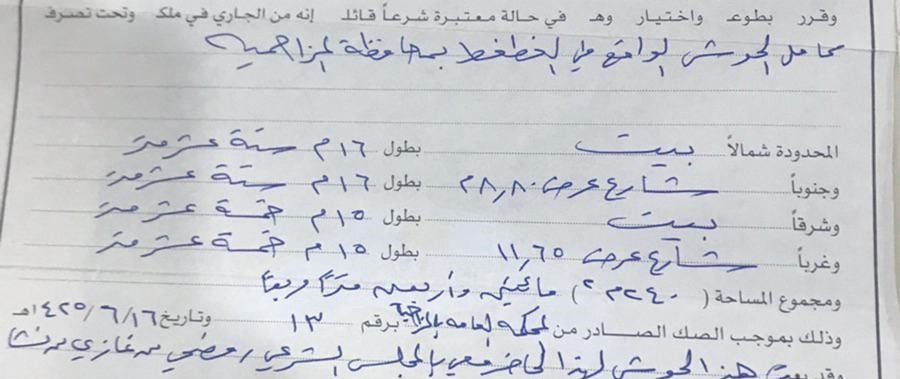 وقرر بطوعـ واختيار وهـ في حالة معتبرة شرعاً قائلـ إنه من الجاري في ملكـ وتحت تصرفـ
كامل الحوش الواقع في الغطغط بمحافظة المزاحمية
المحدودة شمالاً بيت بطول ١٦م ستة عشر متر
وجنوباً شارع عرض ٨٫٨٠م بطول ١٦م ستة عشر متر
وشرقاً بيت بطول ١٥م خمسة عشر متر
وغرباً شارع عرض ١١٫٦٥ بطول ١٥م خمسة عشر متر
ومجموع المساحة (٢٤٠م٢) مائتين وأربعين متراً مربعاً
وذلك بموجب الصك الصادر من المحكمة العامة بالمزاحمية برقم ١٣ وتاريخ ١٤٢٥/٦/١٦هـ
وقد بعت هذا الحوش لهذا الحاضر معي بالمجلس الشرعي غازي